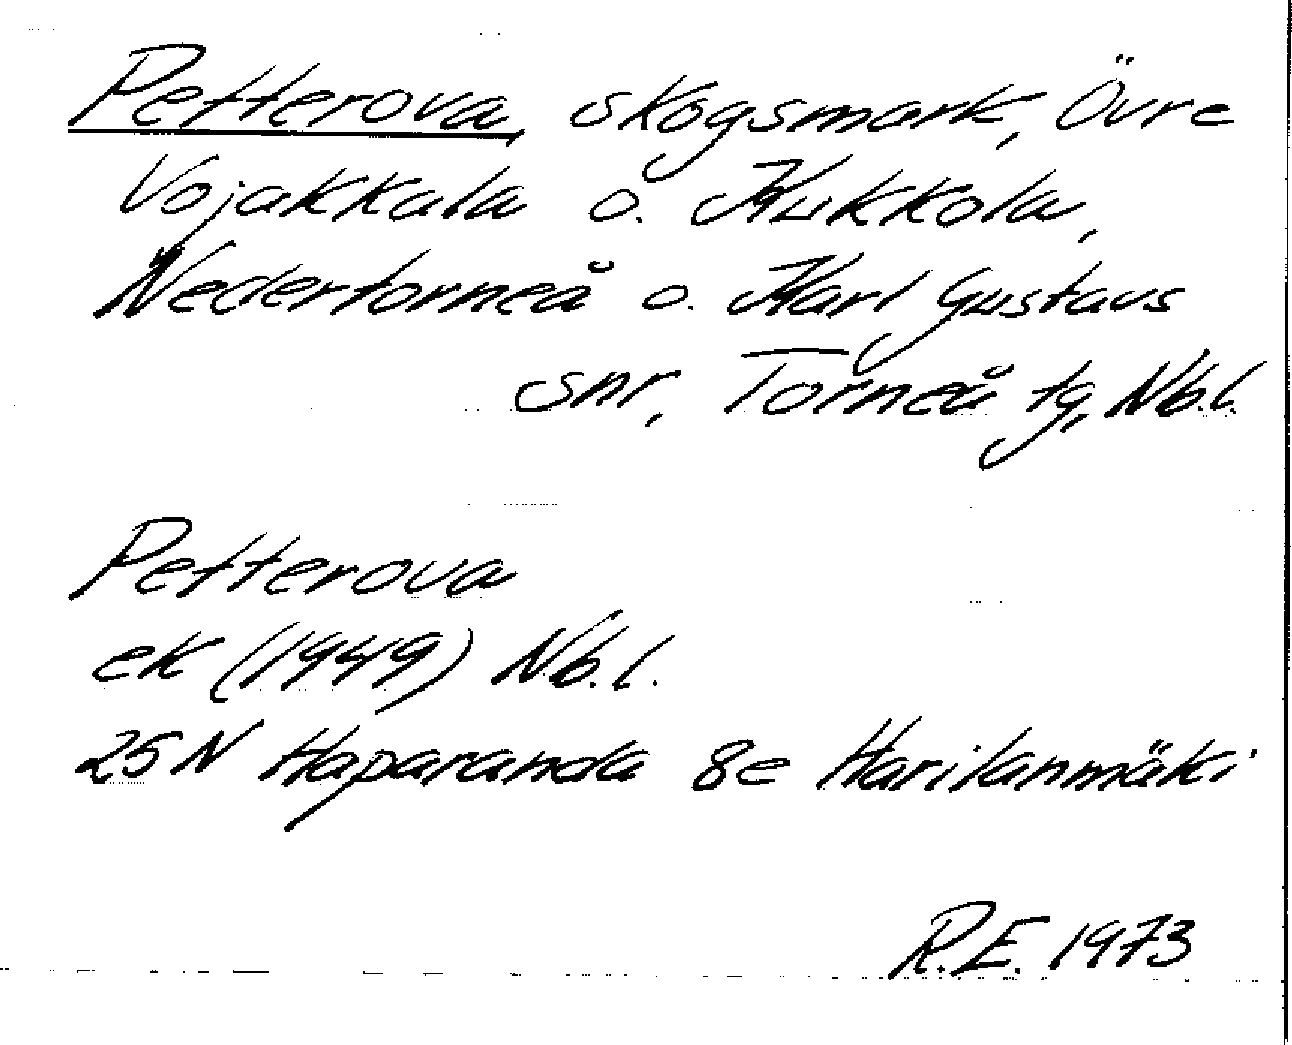 Petterova, skogsmark, Övre
Vojakkala o. Kukkola,
Nedertorneå o. Karl Gustavs
snr, Torneå tg, Nb.l.
Petterova
ek (1949) Nb.l.
25 N Haparanda 8e Harilanmäki
R.E. 1973